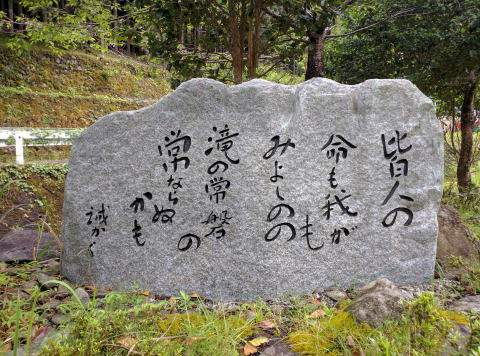 皆人の
命も我が
も
みよしのの
滝の常磐
の
常ならぬ
かも
誠かく